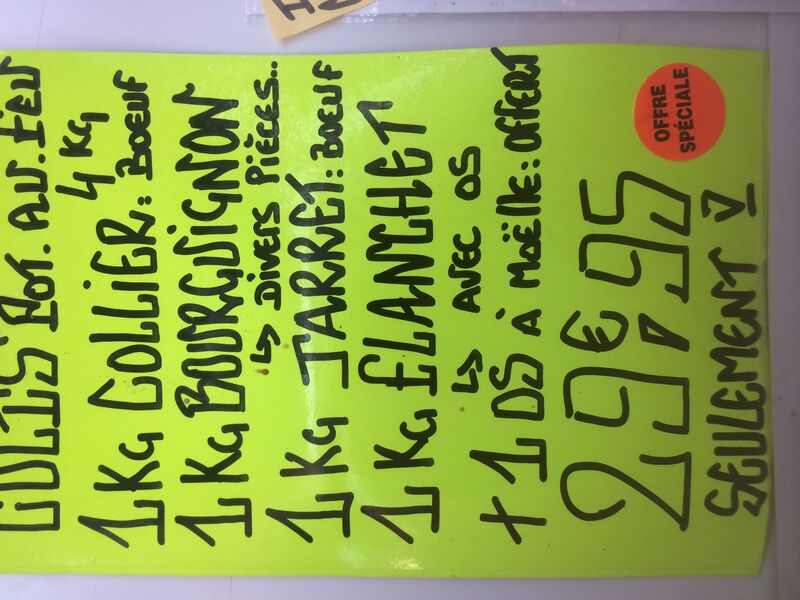 COLIS POT.AU.FEU
4 KG
1 KG COLLIER: BOEUF
1 KG BOURGUIGNON
↳ DIVERS PIÈCES..
1 KG JARRET: BOEUF
1 KG FLANCHET
↳ AVEC OS
+ 1 OS À MOËLLE: OFFERT
29€,95
OFFRE
SPÉCIALE
SEULEMENT